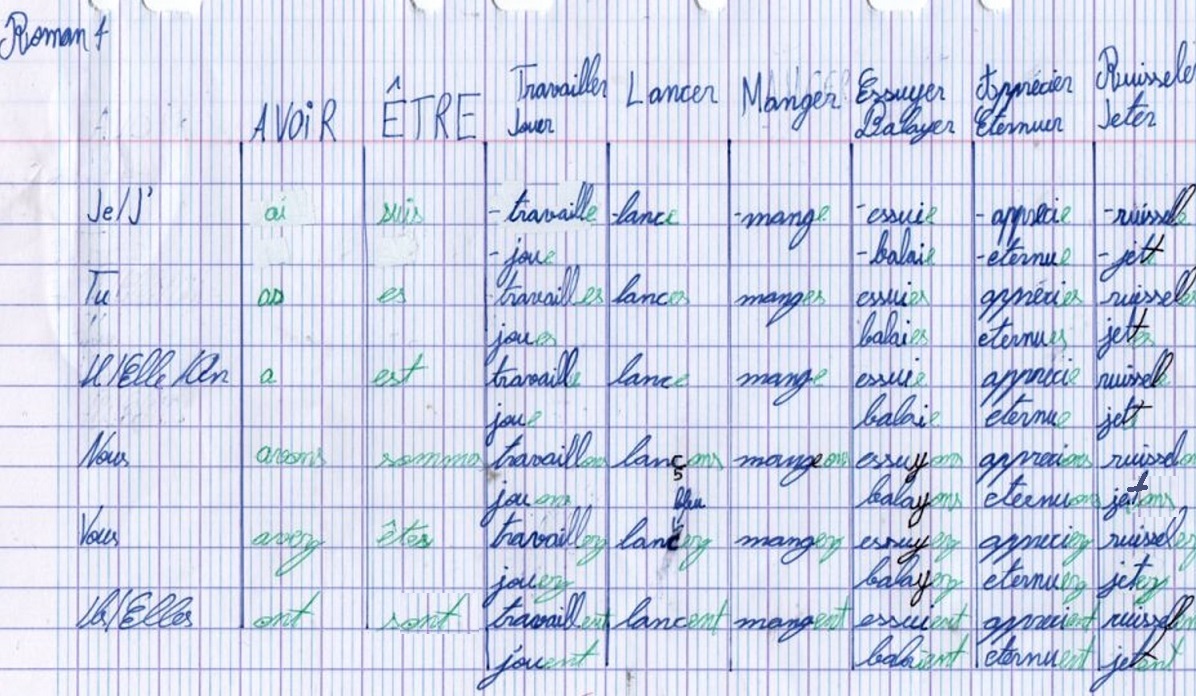 Roman 1
AVOIR ÊTRE Travailler Lancer Manger Essuyer Apprécier Ruisseler
Jouer Balayer Eternuer Jeter
Je/J' ai suis - travaille - lance - mange - essuie - apprécie - ruisselle
- joue - balaie - eternue - jett
Tu as es travailles lances manges essuies apprécies ruisselle
joues balaies eternues jettes
Il/Elle/On a est travaille lance mange essuie apprécie ruissell
joue balaie eternue jett
Nous avons sommes travaillons lançons mangeons essuyons apprecions ruisselo
jouons balayons eternuons jetons
bleu
Vous avez êtes travaillez lancez mangez essuyez appreciez ruisselez
jouez balayez eternuez jetez
Ils/Elles ont sont travaillent lancent mangent essuient apprecient ruissellen
jouent balaient eternuent jetent